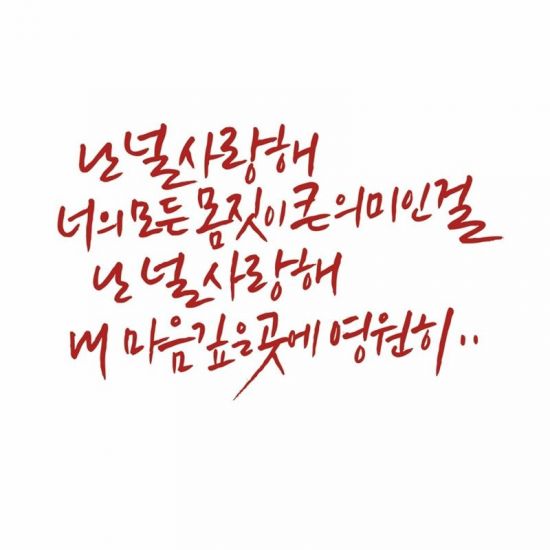 난 널 사랑해
너의 모든 몸짓이 큰 의미인걸
난 널 사랑해
내 마음 깊은 곳에 영원히..